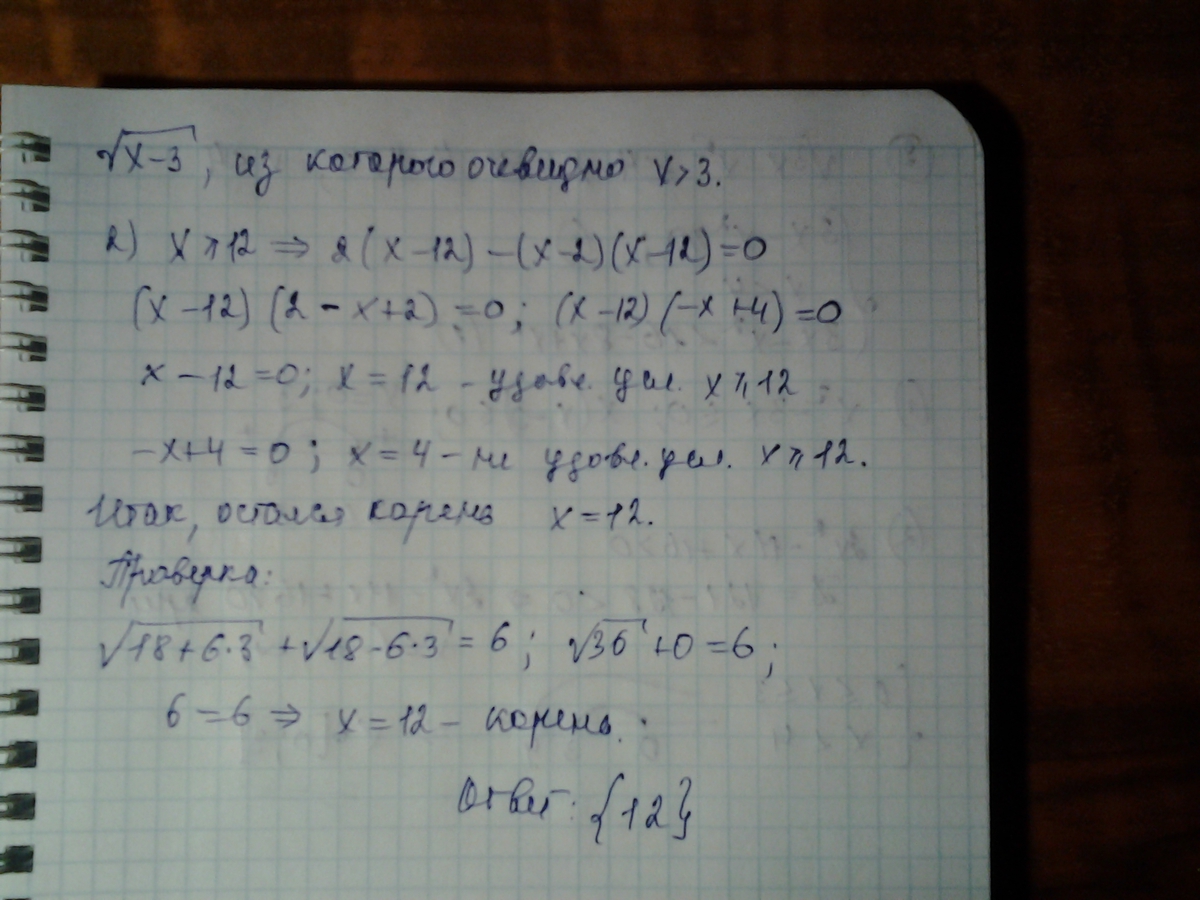 √x-3, из которого очевидно x>3.
2) x⩾12 ⇒ 2(x-12)-(x-2)(x-12)=0
(x-12)(2-x+2)=0; (x-12)(-x+4)=0
x-12=0; x=12 - удовл. усл. x⩾12
-x+4=0; x=4 - не удовл. усл. x⩾12.
Итак, остался корень x=12.
Проверка:
√18+6·3 + √18-6·3 = 6; √36 +0=6;
6=6 ⇒ x=12 - корень.
Ответ: {12}